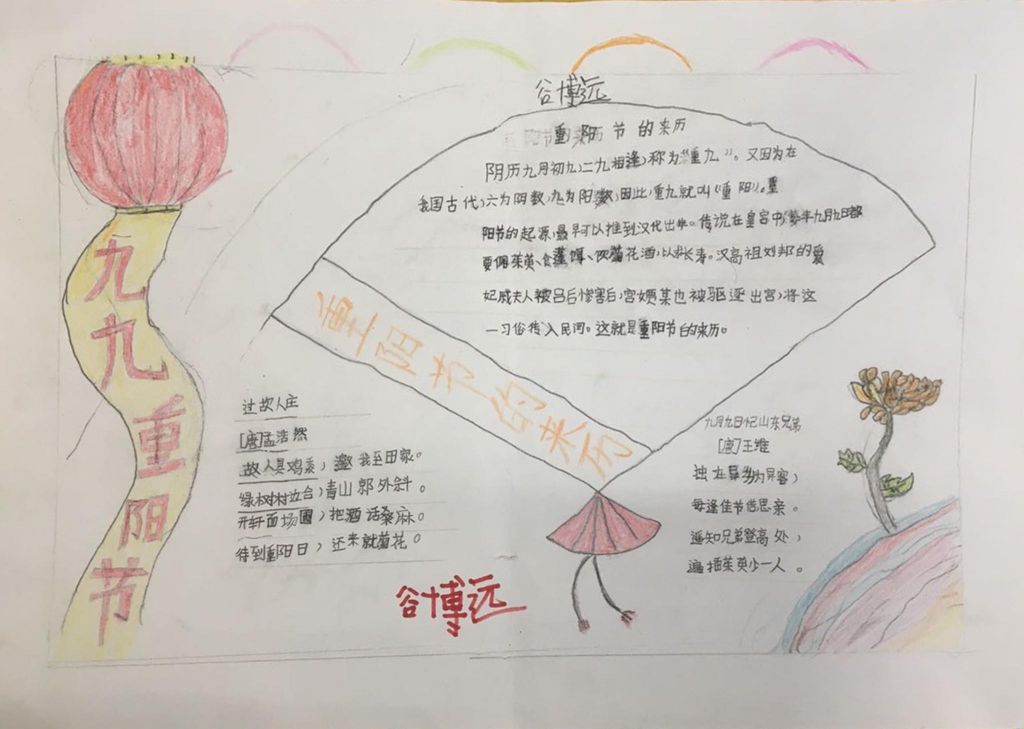 九九重阳节
谷博远
重阳节的来历
阴历九月初九,二九相逢,称为“重九”。又因为在
我国古代,六为阴数,九为阳数,因此,重九就叫“重阳”。重
阳节的起源,最早可以推到汉化出来。传说在皇宫中,每年九月九日都
要佩茱萸、食蓬饵、饮菊花酒,以求长寿。汉高祖刘邦的爱
妃戚夫人被吕后惨害后,宫嫔某也被驱逐出宫,将这
一习俗传入民河。这就是重阳节的来历。
重阳节的来历
过故人庄
[唐]孟浩然
故人具鸡黍,邀我至田家。
绿树村边合,青山郭外斜。
开轩面场圃,把酒话桑麻。
待到重阳日,还来就菊花。
九月九日忆山东兄弟
[唐]王维
独在异乡为异客,
每逢佳节倍思亲。
遥知兄弟登高处,
遍插茱萸少一人。
谷博远